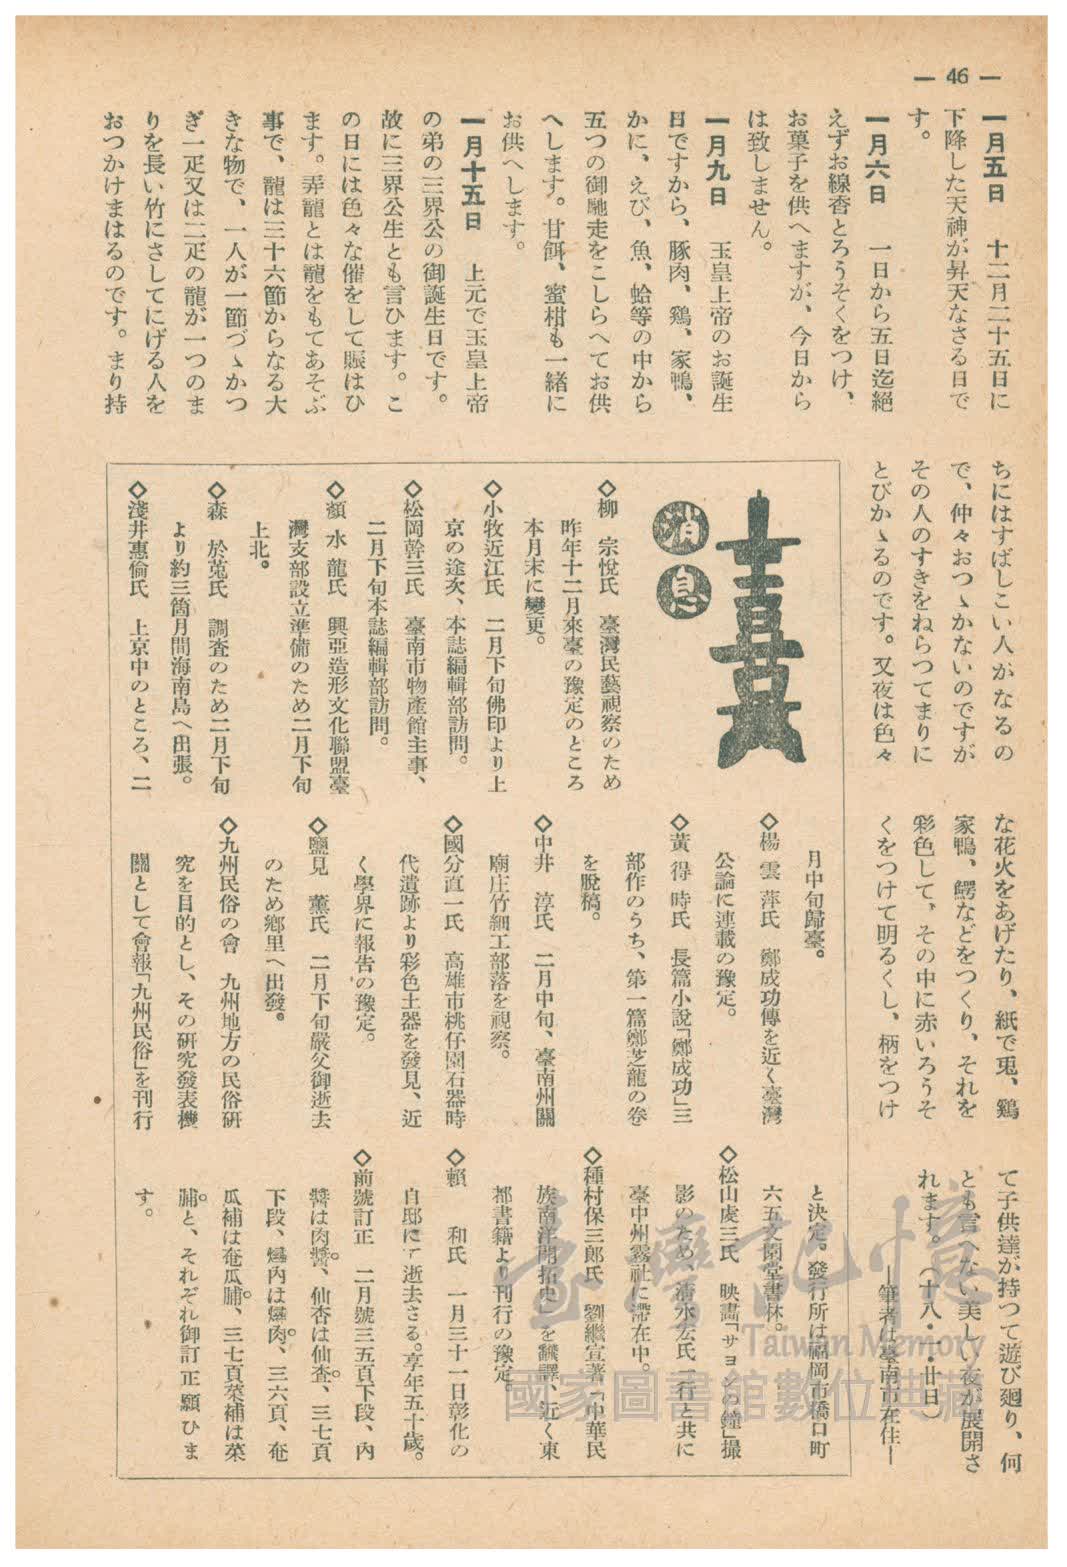 — 46 —
一月五日　十二月二十五日に
下降した天神が昇天なさる日で
す。
一月六日　一日から五日迄絕
えずお線香とろうそくをつけ、
お菓子を供へますが、今日から
は致しません。
一月九日　玉皇上帝のお誕生
日ですから、豚肉、鷄、家鴨、
かに、えび、魚、蛤等の中から
五つの御馳走をこしらへてお供
へします。甘餌、蜜柑も一緒に
お供へします。
一月十五日　上元で玉皇上帝
の弟の三界公の御誕生日です。
故に三界公生とも言ひます。こ
の日には色々な催をして賑はひ
ます。弄龍とは龍をもてあそぶ
事で、龍は三十六節からなる大
きな物で、一人が一節づゝかつ
ぎ一疋又は二疋の龍が一つのま
りを長い竹にさしてにげる人を
おつかけまはるのです。まり持
ちにはすばしこい人がなるの
で、仲々おつゝかないのですが
その人のすきをねらつてまりに
とびかゝるのです。又夜は色々
な花火をあげたり、紙で兎、鷄
家鴨、鰐などをつくり、それを
彩色して、その中に赤いろうそ
くをつけて明るくし、柄をつけ
て子供達が持つて遊び廻り、何
とも言へない美しい夜が展開さ
れます。（十八・・廿日）
—筆者は臺南市在住—
消息
◇柳　宗悅氏　臺灣民藝視察のため
昨年十二月來臺の豫定のところ
本月末に變更。
◇小牧近江氏　二月下旬佛印より上
京の途次、本誌編輯部訪問。
◇松岡幹三氏　臺南市物產館主事、
二月下旬本誌編輯部訪問。
◇顏水龍氏　興亞造形文化聯盟臺
灣支部設立準備のため二月下旬
上北。
◇森　於菟氏　調査のため二月下旬
より約三箇月間海南島へ出張。
◇淺井惠倫氏　上京中のところ、二
月中旬歸臺。
◇楊雲萍氏　鄭成功傳を近く臺灣
公論に連載の豫定。
◇黃得時氏　長篇小說「鄭成功」三
部作のうち、第一篇鄭芝龍の卷
を脫稿。
◇中井　淳氏　二月中旬、臺南州關
廟庄竹細工部落を視察。
◇國分直一氏　高雄市桃仔園石器時
代遺跡より彩色土器を發見、近
く學界に報告の豫定。
◇鹽見　薰氏　二月下旬嚴父御逝去
のため鄕里へ出發。
◇九州民俗の會　九州地方の民俗硏
究を目的とし、その硏究發表機
關として會報「九州民俗」を刊行
と決定。發行所は福岡市橋口町
六五文園堂書林。
◇松山虔三氏　映畫「サヨンの鐘」撮
影のため、淸水宏氏一行と共に
臺中州霧社に滯在中。
◇種村保三郞氏　劉繼宣著「中華民
族南洋開拓史」を飜譯、近く東
都書籍より刊行の豫定。
◇賴　和氏　一月三十一日彰化の
自邸にて逝去さる。享年五十歲。
◇前號訂正　二月號三五頁下段、內
醬は肉醬、仙杏は仙査、三七頁
下段、爆內は爆肉、三六頁、奄
瓜補は奄瓜脯、三七頁菜補は菜
脯と、それぞれ御訂正願ひま
す。
臺灣記憶
Taiwan Memory
國家圖書館數位典藏